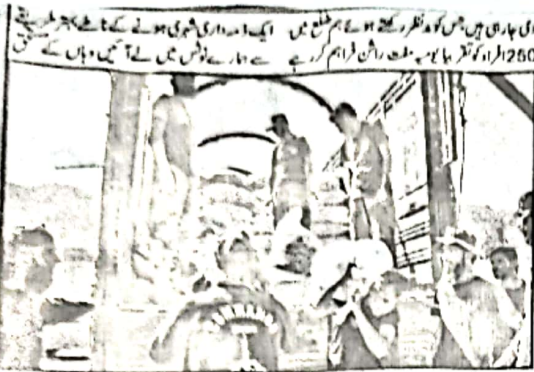 دی جارہی ہیں جس کو مدنظر رکھتے ہوئے ہم ضلع میں
250 افراد کو تقریبا یومیہ مفت راشن فراہم کر رہے
ایک ذمہ داری شہری ہونے کے ناطے بہتر طریقے
سے ہمارے نوٹس میں لے آئیں وہاں کے